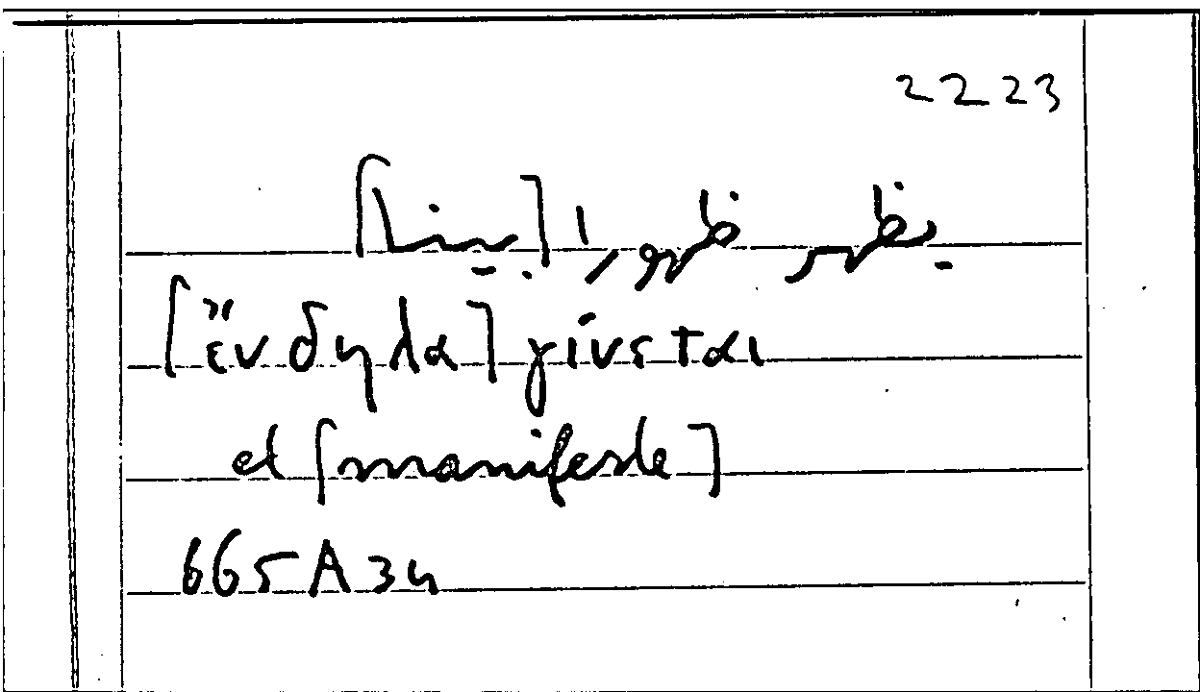 2223
يظهر ظهورا [بينا]
[ἔνδηλα] γίνεται
et [manifeste]
665A34